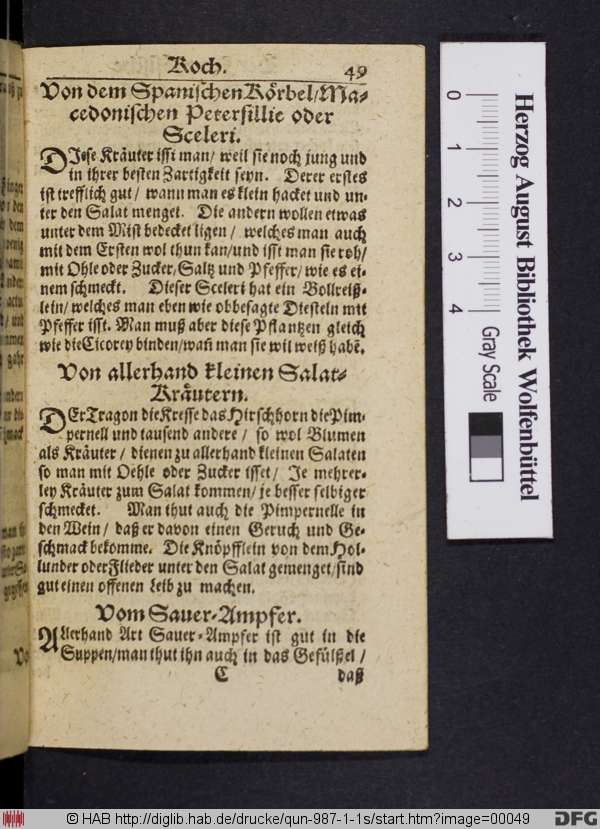 Koch. 49
Von dem Spanischen Körbel/Ma-
cedonischen Petersillie oder
Sceleri.
DJese Kräuter isst man/ weil sie noch jung und
in ihrer besten Zartigkeit seyn. Derer erstes
ist trefflich gut/ wann man es klein hacket und un-
ter den Salat menget. Die andern wollen etwas
unter dem Mist bedecket ligen/ welches man auch
mit dem Ersten wol thun kan/und isst man sie roh/
mit Ohle oder Zucker/Saltz und Pfeffer/ wie es ei-
nem schmeckt. Dieser Sceleri hat ein Vollreiß-
lein/ welches man eben wie obbesagte Diesteln mit
Pfeffer isst. Man muß aber diese Pflantzen gleich
wie die Cicorey binden/wañ man sie wil weiß habẽ.
Von allerhand kleinen Salat-
Kräutern.
DEr Tragon die Kresse das Hirschhorn die Pim-
pernell und tausend andere/ so wol Blumen
als Kräuter/ dienen zu allerhand kleinen Salaten
so man mit Oehle oder Zucker isset/ Je mehrer-
ley Kräuter zum Salat kommen/ je besser selbiger
schmecket. Man thut auch die Pimpernelle in
den Wein/ daß er davon einen Geruch und Ge-
schmack bekomme. Die Knöpfflein von dem Hol-
lunder oder Flieder unter den Salat gemenget/sind
gut einen offenen Leib zu machen.
Vom Sauer-Ampfer.
ALlerhand Art Sauer-Ampfer ist gut in die
Suppen/man thut ihn auch in das Gefülßel/
C daß
0
1
2
3
4
Gray Scale
Herzog August Bibliothek Wolfenbüttel
© HAB http://diglib.hab.de/drucke/qun-987-1-1s/start.htm?image=00049
DFG